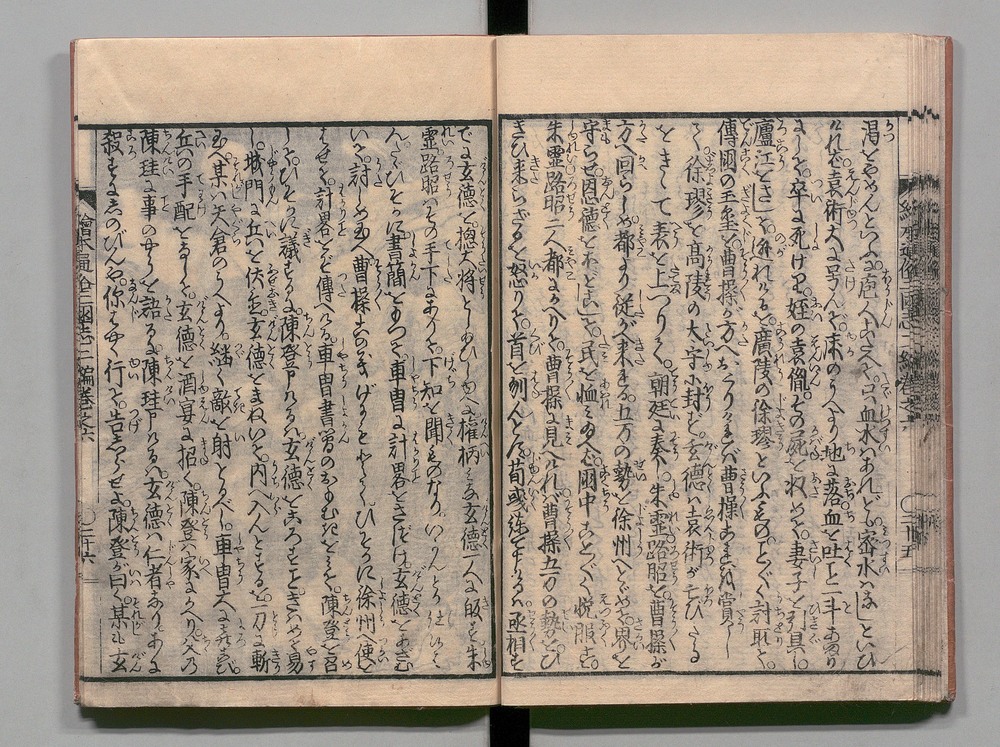 渇をやめんといふ庖人こたへて只血水はあれども密水はなしといひ
ければ袁術大に号んで床のうへより地に落血を吐こと一斗あまり
にして卒に死けり姪の袁胤その死を収めて妻子を引具し
廬江をさして遁れけるを廣陵の徐璆といふものことごとく討取て
傳國の玉璽を曹操が方へおくりければ曹操あまりに賞し
て徐璆を髙陵の太守に封ず玄徳は袁術がほろびたる
をきいて表を上つりて朝廷に奏し朱霊路昭を曹操が
方へ回らしめ都より従がへ来れる五万の勢を徐州へとゞめ界を
守らせ恩徳をほどこして民を恤み給へば國中ことごとく悦服す
朱霊路昭二人都にかへりて曹操に見へければ曹操五万の勢をひ
きひ来らざるを怒りて首を刎んとす荀彧諫て申けるは丞相すで
でに玄徳を揔大将としたまひし上は権柄みな玄徳一人に帰す朱
霊路昭はその手下にありて下知を聞ものなりいかんともせじ
んひそかに書簡をもつて車冑に計畧をさづけ玄徳をあざむ
いて討しめ玉へ曹操このぎしかるべしとてひそかに徐州へ使を
はせて計畧をぞ傳へける車冑書簡のおもむきを見て陳登を召
しひそかに議するに陳登申けるは玄徳をころすこときはめて易
し城門に兵を伏置玄徳をまねいて内へ入んとするを一刀に斬
玉へ某は矢倉のうへより継く敵を射とるべし車冑大に喜び
兵の手配をなして玄徳を酒宴に招く陳登家にかへり父の
陳珪に事のやうを語るに陳珪申けるは玄徳は仁者なりあに
殺すにしのびんや你はやく行て告しらせよ陳登が曰く某も玄